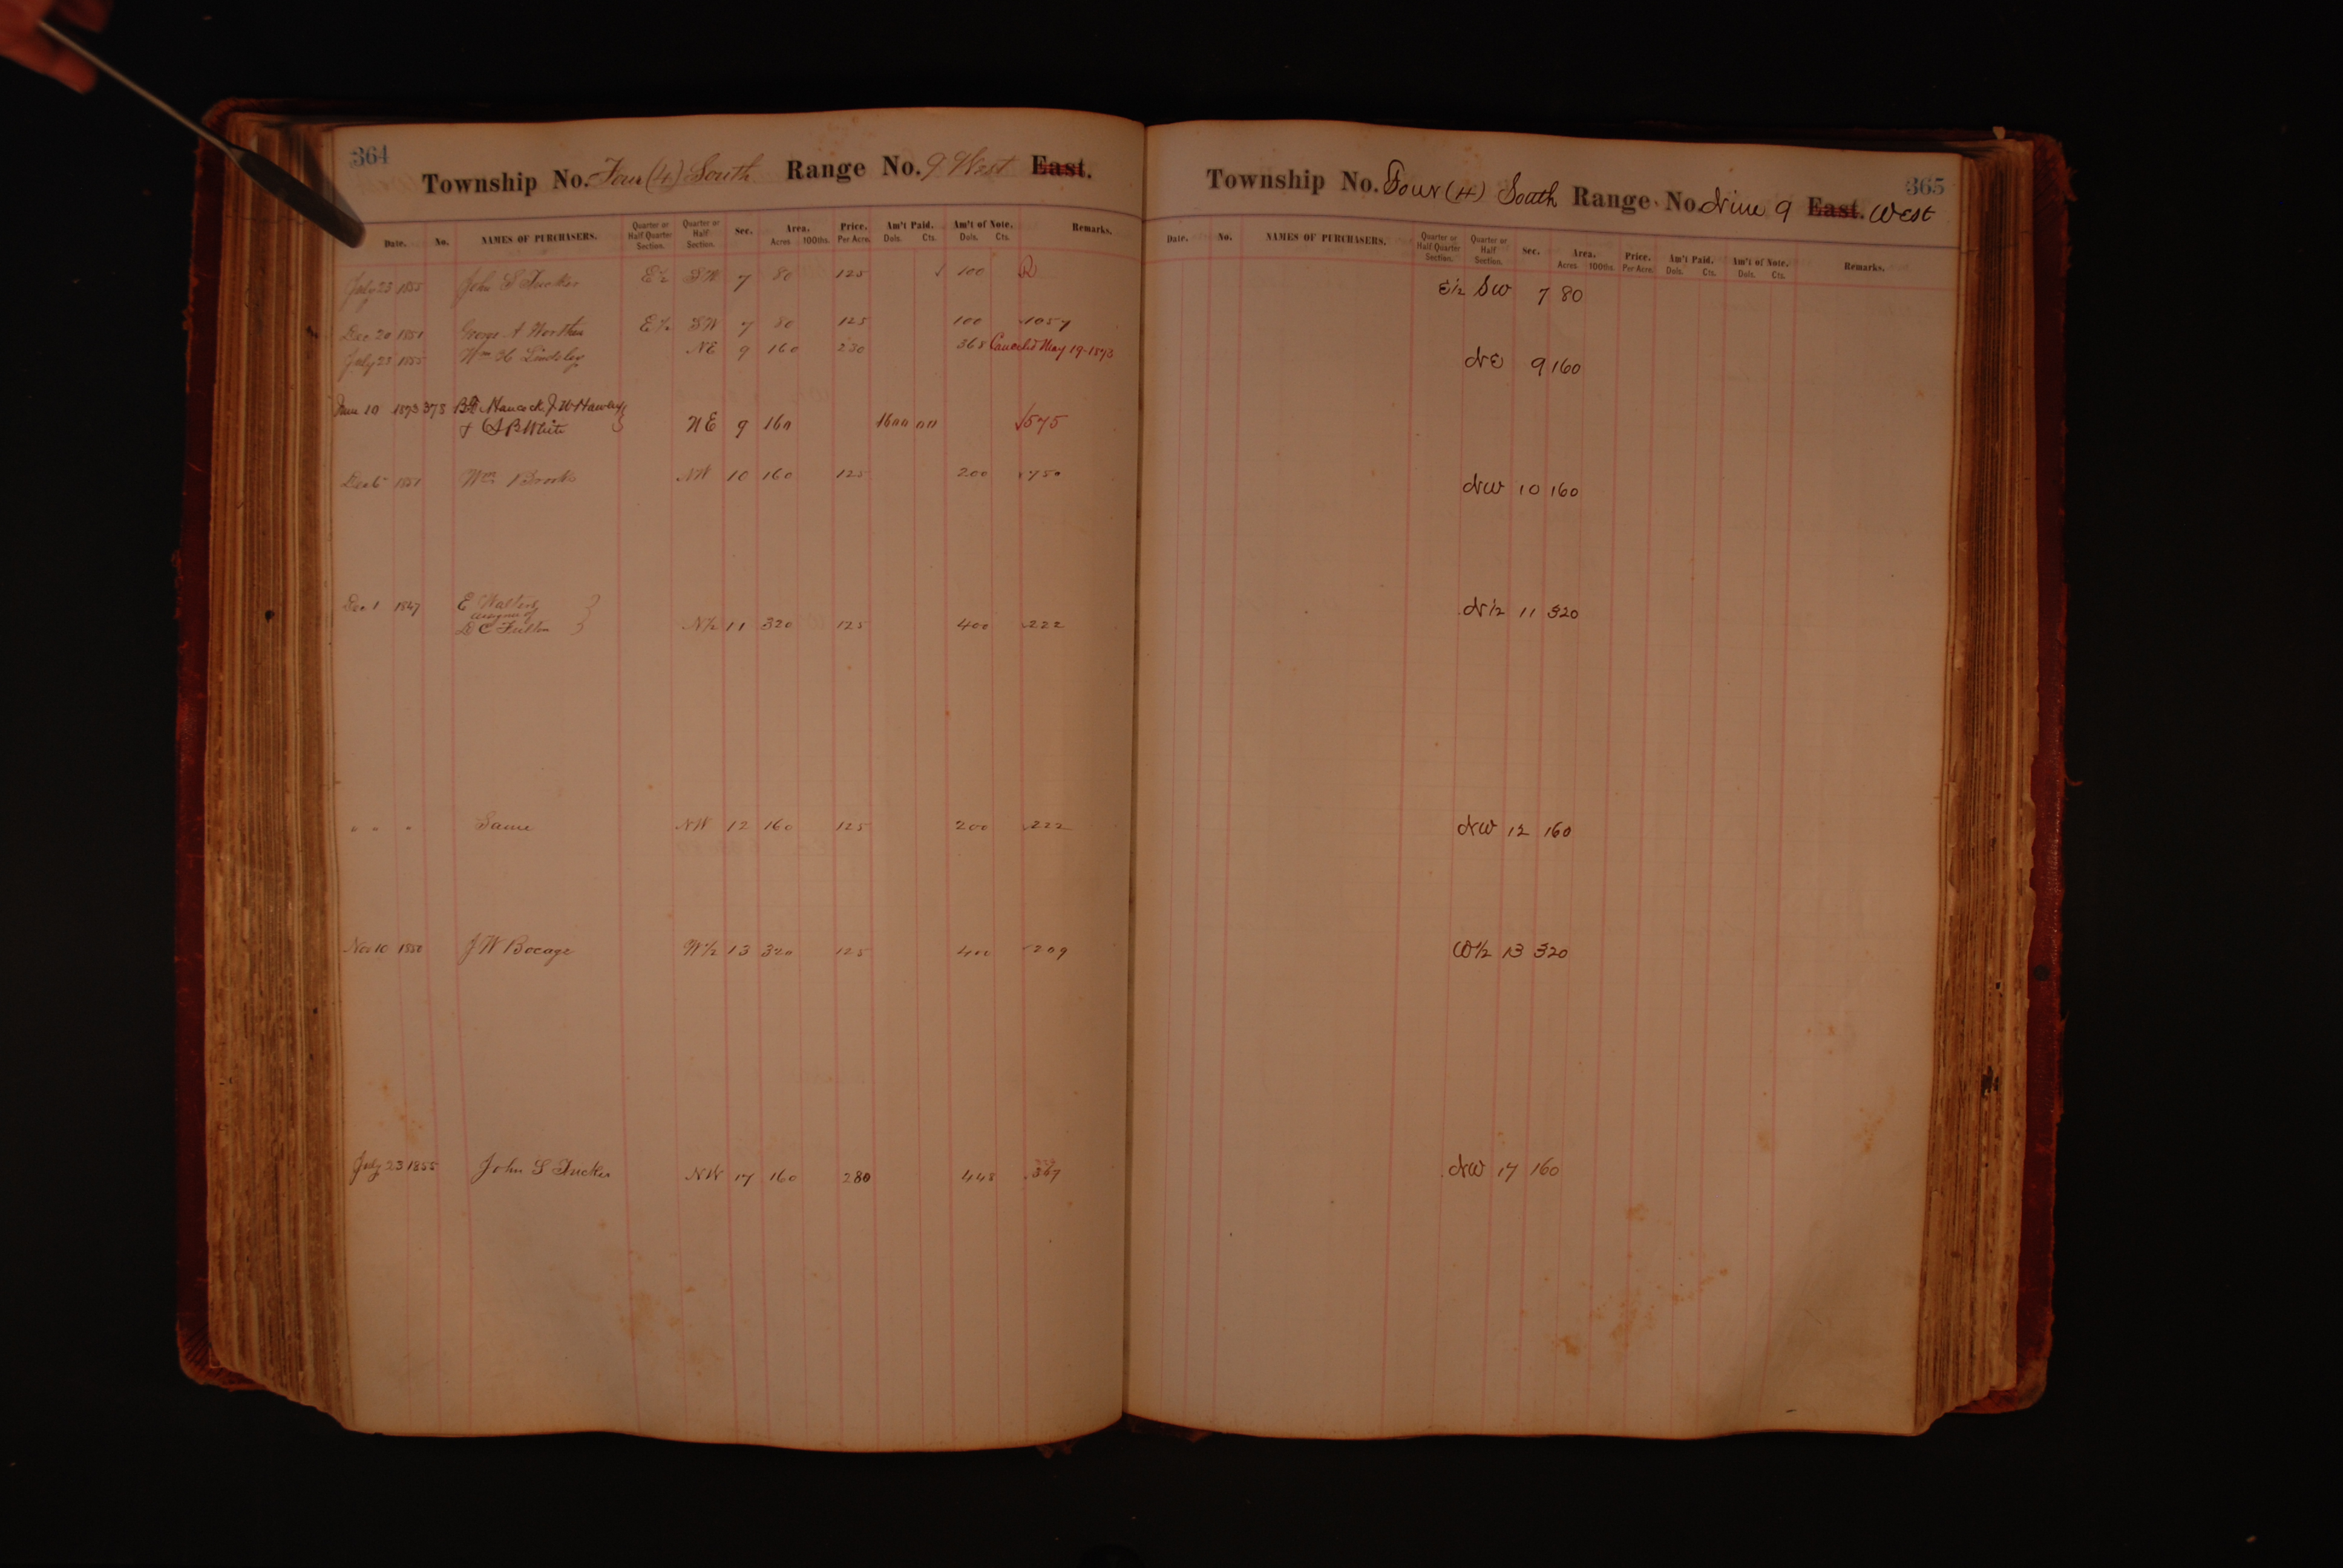 364
Township No. Four (4) South Range No. 9 West East.
Date. No. NAMES OF PURCHASERS. Quarter or Half Quarter Section. Quarter or Half Section. Sec. Area. Acres 100ths. Price. Per Acre. Am't Paid. Dols. Cts. Am't of Note. Dols. Cts. Remarks.
July 23 1855 John S Tucker E½ SW 7 80 125 100 R
Dec 20 1851 George A Worthen E½ SW 7 80 125 100 1057
July 23 1855 Wm H Lindsley NE 9 160 230 368 Canceled May 19-1873
June 10 1873 378 Hancock, J. W. Hawley
& White NE 9 160 1600 00 √575
Dec 1851 Wm Brooks NW 10 160 125 200 750
Dec 1 1847 E Walters
assignee of
D C Fulton N½ 11 320 125 400 222
" " " Same NW 12 160 125 200 222
Nov 10 1850 J W Bocage W½ 13 320 125 400 209
July 23 1855 John S Tucker NW 17 160 280 448 367
365
Township No. Four (4) South Range No. Nine 9 East. West
Date. No. NAMES OF PURCHASERS. Quarter or Half Quarter Section. Quarter or Half Section. Sec. Area. Acres 100ths. Price. Per Acre. Am't Paid. Dols. Cts. Am't of Note. Dols. Cts. Remarks.
E½ SW 7 80
NE 9 160
NW 10 160
N½ 11 320
NW 12 160
W½ 13 320
NW 17 160